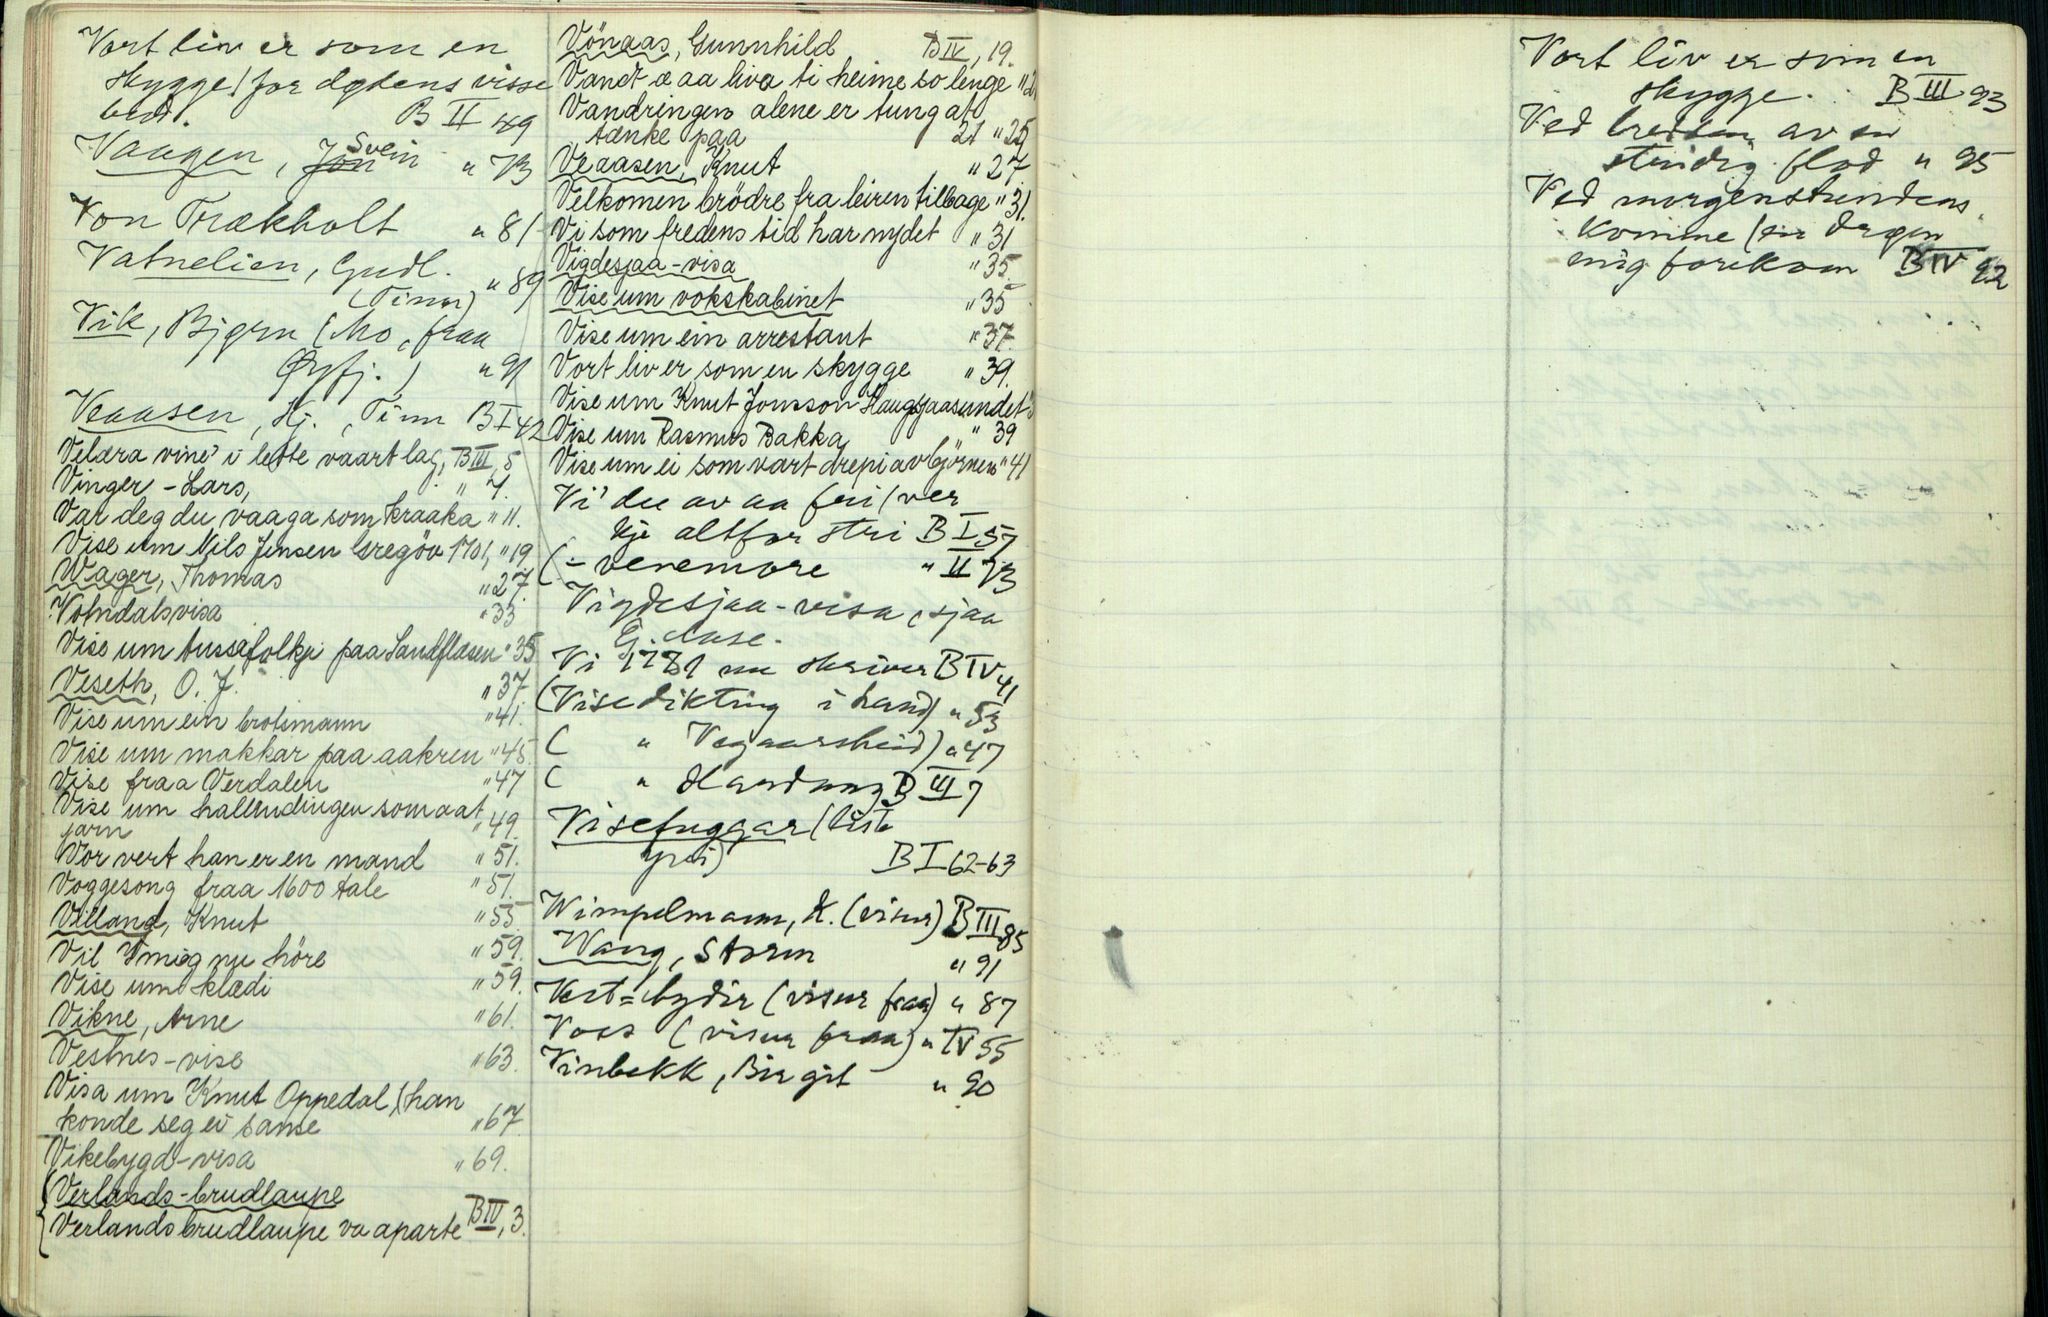 Vort liv er som en
skygge / for dødens visse
bud. B II 49
Vaagen, Jon Svein " 73
Von Trækholt " 81
Vatnelien, Gudl.
(Tinn) " 89
Vik, Bjørn (Mo, fraa
Øyfj.) " 91
Veaasen, Hj., Tinn B I 42
Velæra vine' i lette vaart lag, B III, 5
Vinger-Lars, " 7.
Var deg du vaaga som kraaka " 11.
Vise um Nils Jensen Gregöv 1701, " 19
Wager, Thomas " 27.
Votndalsvisa " 33
Vise um tussafolkji paa Sandflæsen " 35
Veseth, O. J. " 37
Vise um ein brotsmann " 41.
Vise um makkar paa aakren " 45.
Vise fraa Verdalen " 47
Vise um hallendingen som aat
jarn " 49.
Vor vert han er en mand " 51.
Voggesong fraa 1600 tale " 51.
Villand, Knut " 55
Vil I mig nu höre " 59.
Vise um klædi " 59.
Vikne, Arne " 61.
Vestnes-vise " 63.
Visa um Knut Oppedal, (han
konde seg ei sanse " 67.
Vikebygd-visa " 69.
Verlands-brudlaupe
Verlandsbrudlaupe va aparte B IV, 3.
Vönaas, Gunnhild B IV, 19.
Vandt æ aa liva ti heime so lenge " 2
Vandringen alene er tung at
tænke paa 21 " 25
Veaasen, Knut " 27
Velkomen brödre fra leiren tilbage " 31.
Vi som fredens tid har nydet " 31
Vigdesjaa-visa " 35.
Vise um vokskabinet " 35
Vise um ein arrestant " 37.
Vort liv er som en skygge " 39.
Vise um Knut Jonsson Haugsjaasundet "
Vise um Rasmus Bakka " 39
Vise um ei som vart drepi av björnen " 41
Vi' du av aa fri / ver
kje altfor stri B I 57
(- venemore " II 73
Vigdesjaa-visa, sjaa
G. Aase.
Vi 1781 nu skriver B IV 41
(Visedikting i land) " 53
( " Vegaarsheid) " 47
( " Hardang B III 7
Visefuggar (liste
yvi) B I 62-63
Wimpelmann, K. (visur) B III 85
Wang, Storm " 91
Vest=bydir (visur fraa) " 87
Voss (visur fraa) " IV 55
Vinbekk, Birgit " 90
Vort liv er som en
skygge. B III 93
Ved bredden av en
stridig flod " 95
Ved morgenstundens
komme / en dragon
mig forekom B IV 92